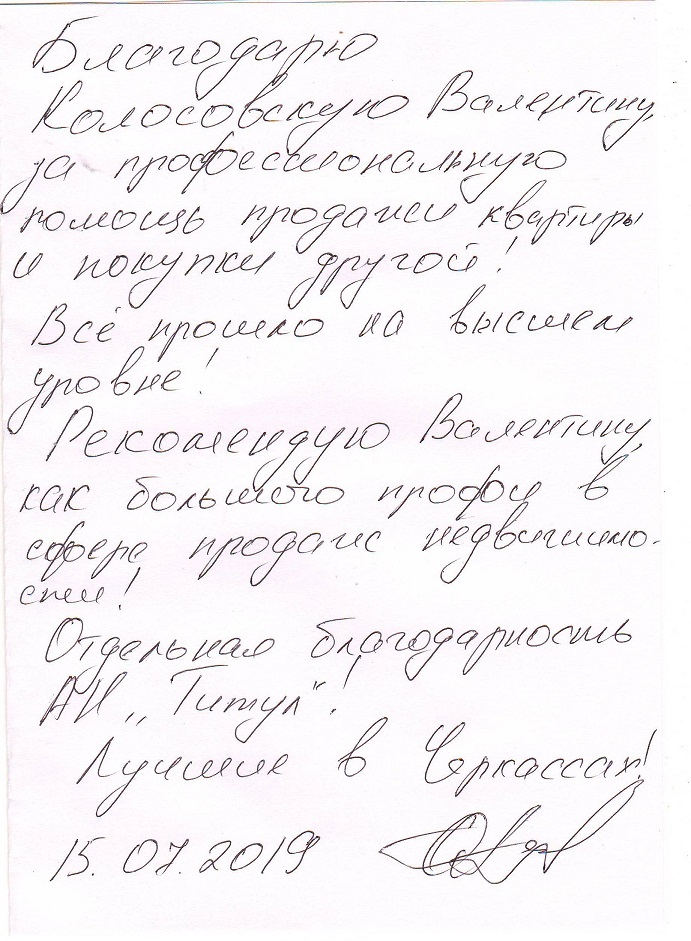 Благодарю
Колосовскую Валентину,
за профессиональную
помощь продажи квартиры
и покупки другой!
Всё прошло на высшем
уровне!
Рекомендую Валентину,
как большого профи в
сфере продаж недвижимо-
сти!
Отдельная благодарность
АН „Титул"!
Лучшие в Черкассах!
15.07.2019